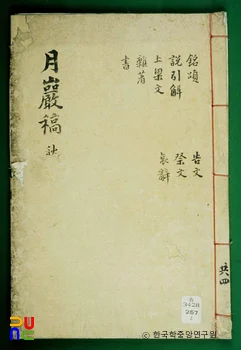 月巖稿 秋
銘頌 告文
說引解 祭文
上梁文 哀辭
雜著
書
共四
B
3428
257
1
PUNE
© 한국학중앙연구원